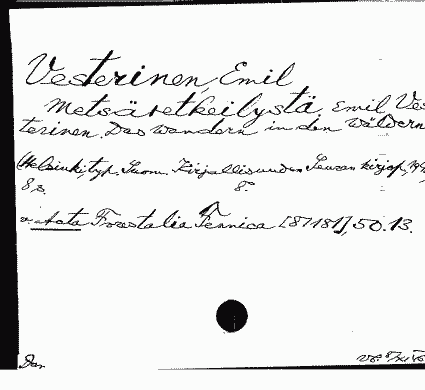 Vesterinen, Emil
Metsäretkeilystä. Emil Ves
terinen. Das Wandern in den Wäldern
Helsinki, typ. Suom. Kirjallisuuden Seuran kirjap.
8 s. 8°.
Acta Forestalia Fennica [8/181], 50.13.
Dar